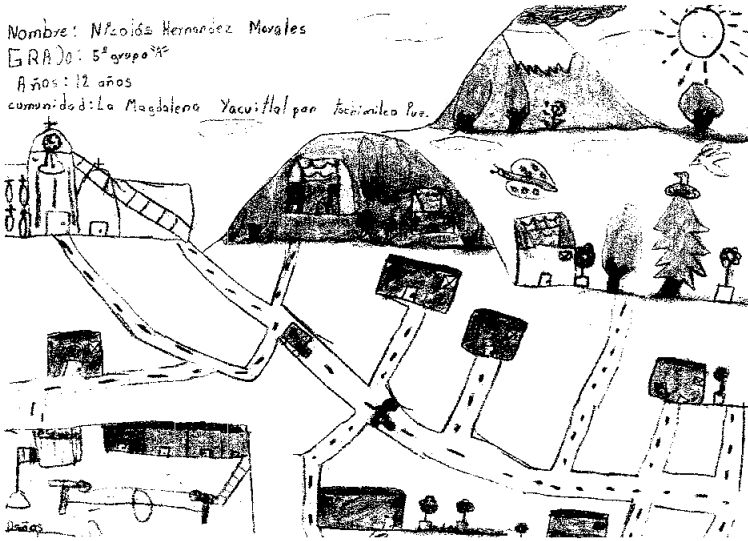 Nombre: Nicolás Hernandez Morales
GRADO: 5º grupo "A"
Años: 12 años
comunidad: La Magdalena Yacuitlalpan Tochimilco Pue.